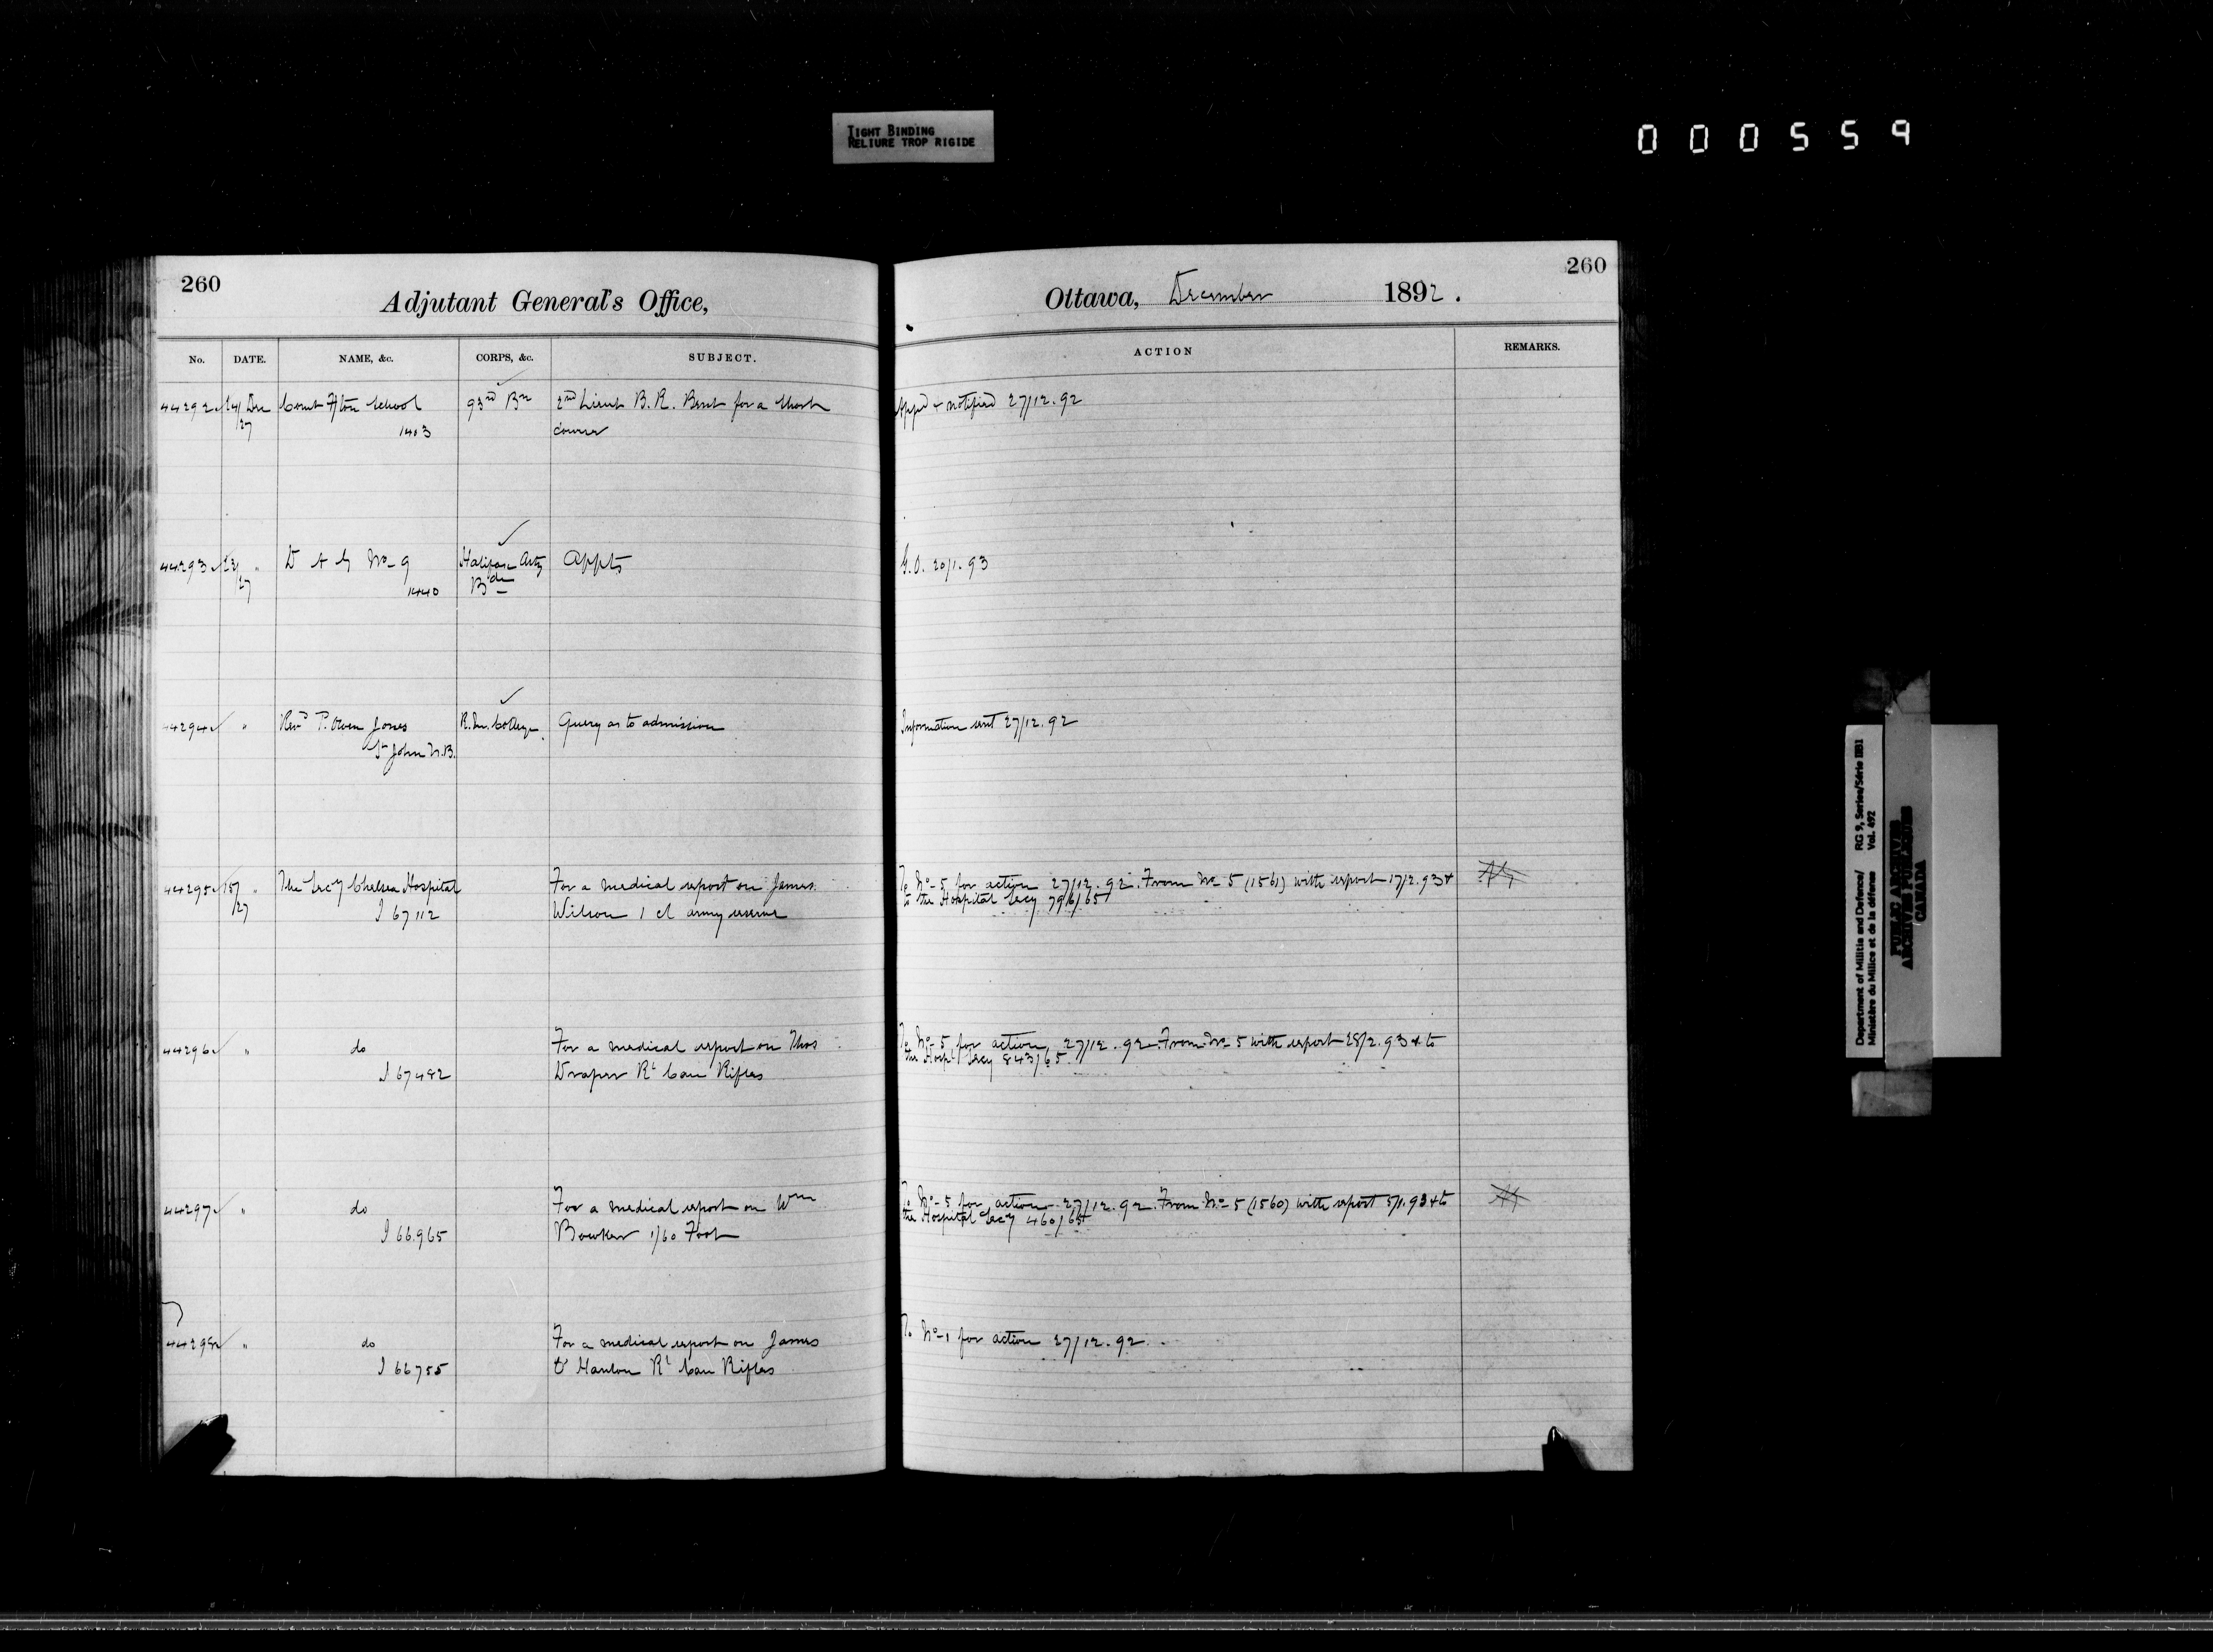 TIGHT BINDING
RELIURE TROP RIGIDE
000559
260
Adjutant General's Office,
No. DATE. NAME, &c. CORPS, &c. SUBJECT.
44292 24/27 Dec Comt Fton School 93rd Bn 2nd Lieut B. R. Bent for a short
1403 course
44293 23/27 " D A G No 9 Halifax Arty Appts
1440 Bde
44294 " Revd T. Owen Jones R.M. College Query as to admission
St John N.B.
44295 15/27 " The Secy Chelsea Hospital For a medical report on James
I 67112 Wilson 1 cl army reserve
44296 " do For a medical report on Thos
I 67482 Draper Rl Can Rifles
44297 " do For a medical report on Wm
I 66965 Bowker 1/60 Foot
44298 " do For a medical report on James
I 66755 O'Hanlon Rl Can Rifles
260
Ottawa, December 1892.
ACTION REMARKS.
Appd & notified 27/12.92
G.O. 20/1.93
Information sent 27/12.92
To No 5 for action 27/12.92. From No 5 (1561) with report 17/2.93 &
to the Hospital Secy 796/65
To No 5 for action 27/12.92. From No 5 with report 28/2.93 & to
the Hospl Secy 843/65.
To No 5 for action 27/12.92. From No 5 (1560) with report 5/1.93 & to
the Hospital Secy 460/65
To No 1 for action 27/12.92.
Department of Militia and Defence/ RG 9, Series/Série IIB1
Ministère du Milice et de la défense Vol. 492
PUBLIC ARCHIVES
ARCHIVES PUBLIQUES
CANADA